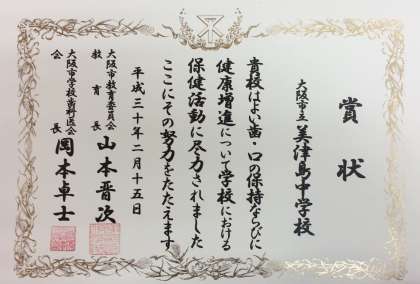 賞状
大阪市立美津島中学校
貴校はよい歯・口の保持ならびに
健康増進について学校における
保健活動に尽力されました
ここにその努力をたたえます
平成三十年二月十五日
大阪市教育委員会
教育長 山本晋次
大阪市学校歯科医会
会長 岡本卓士